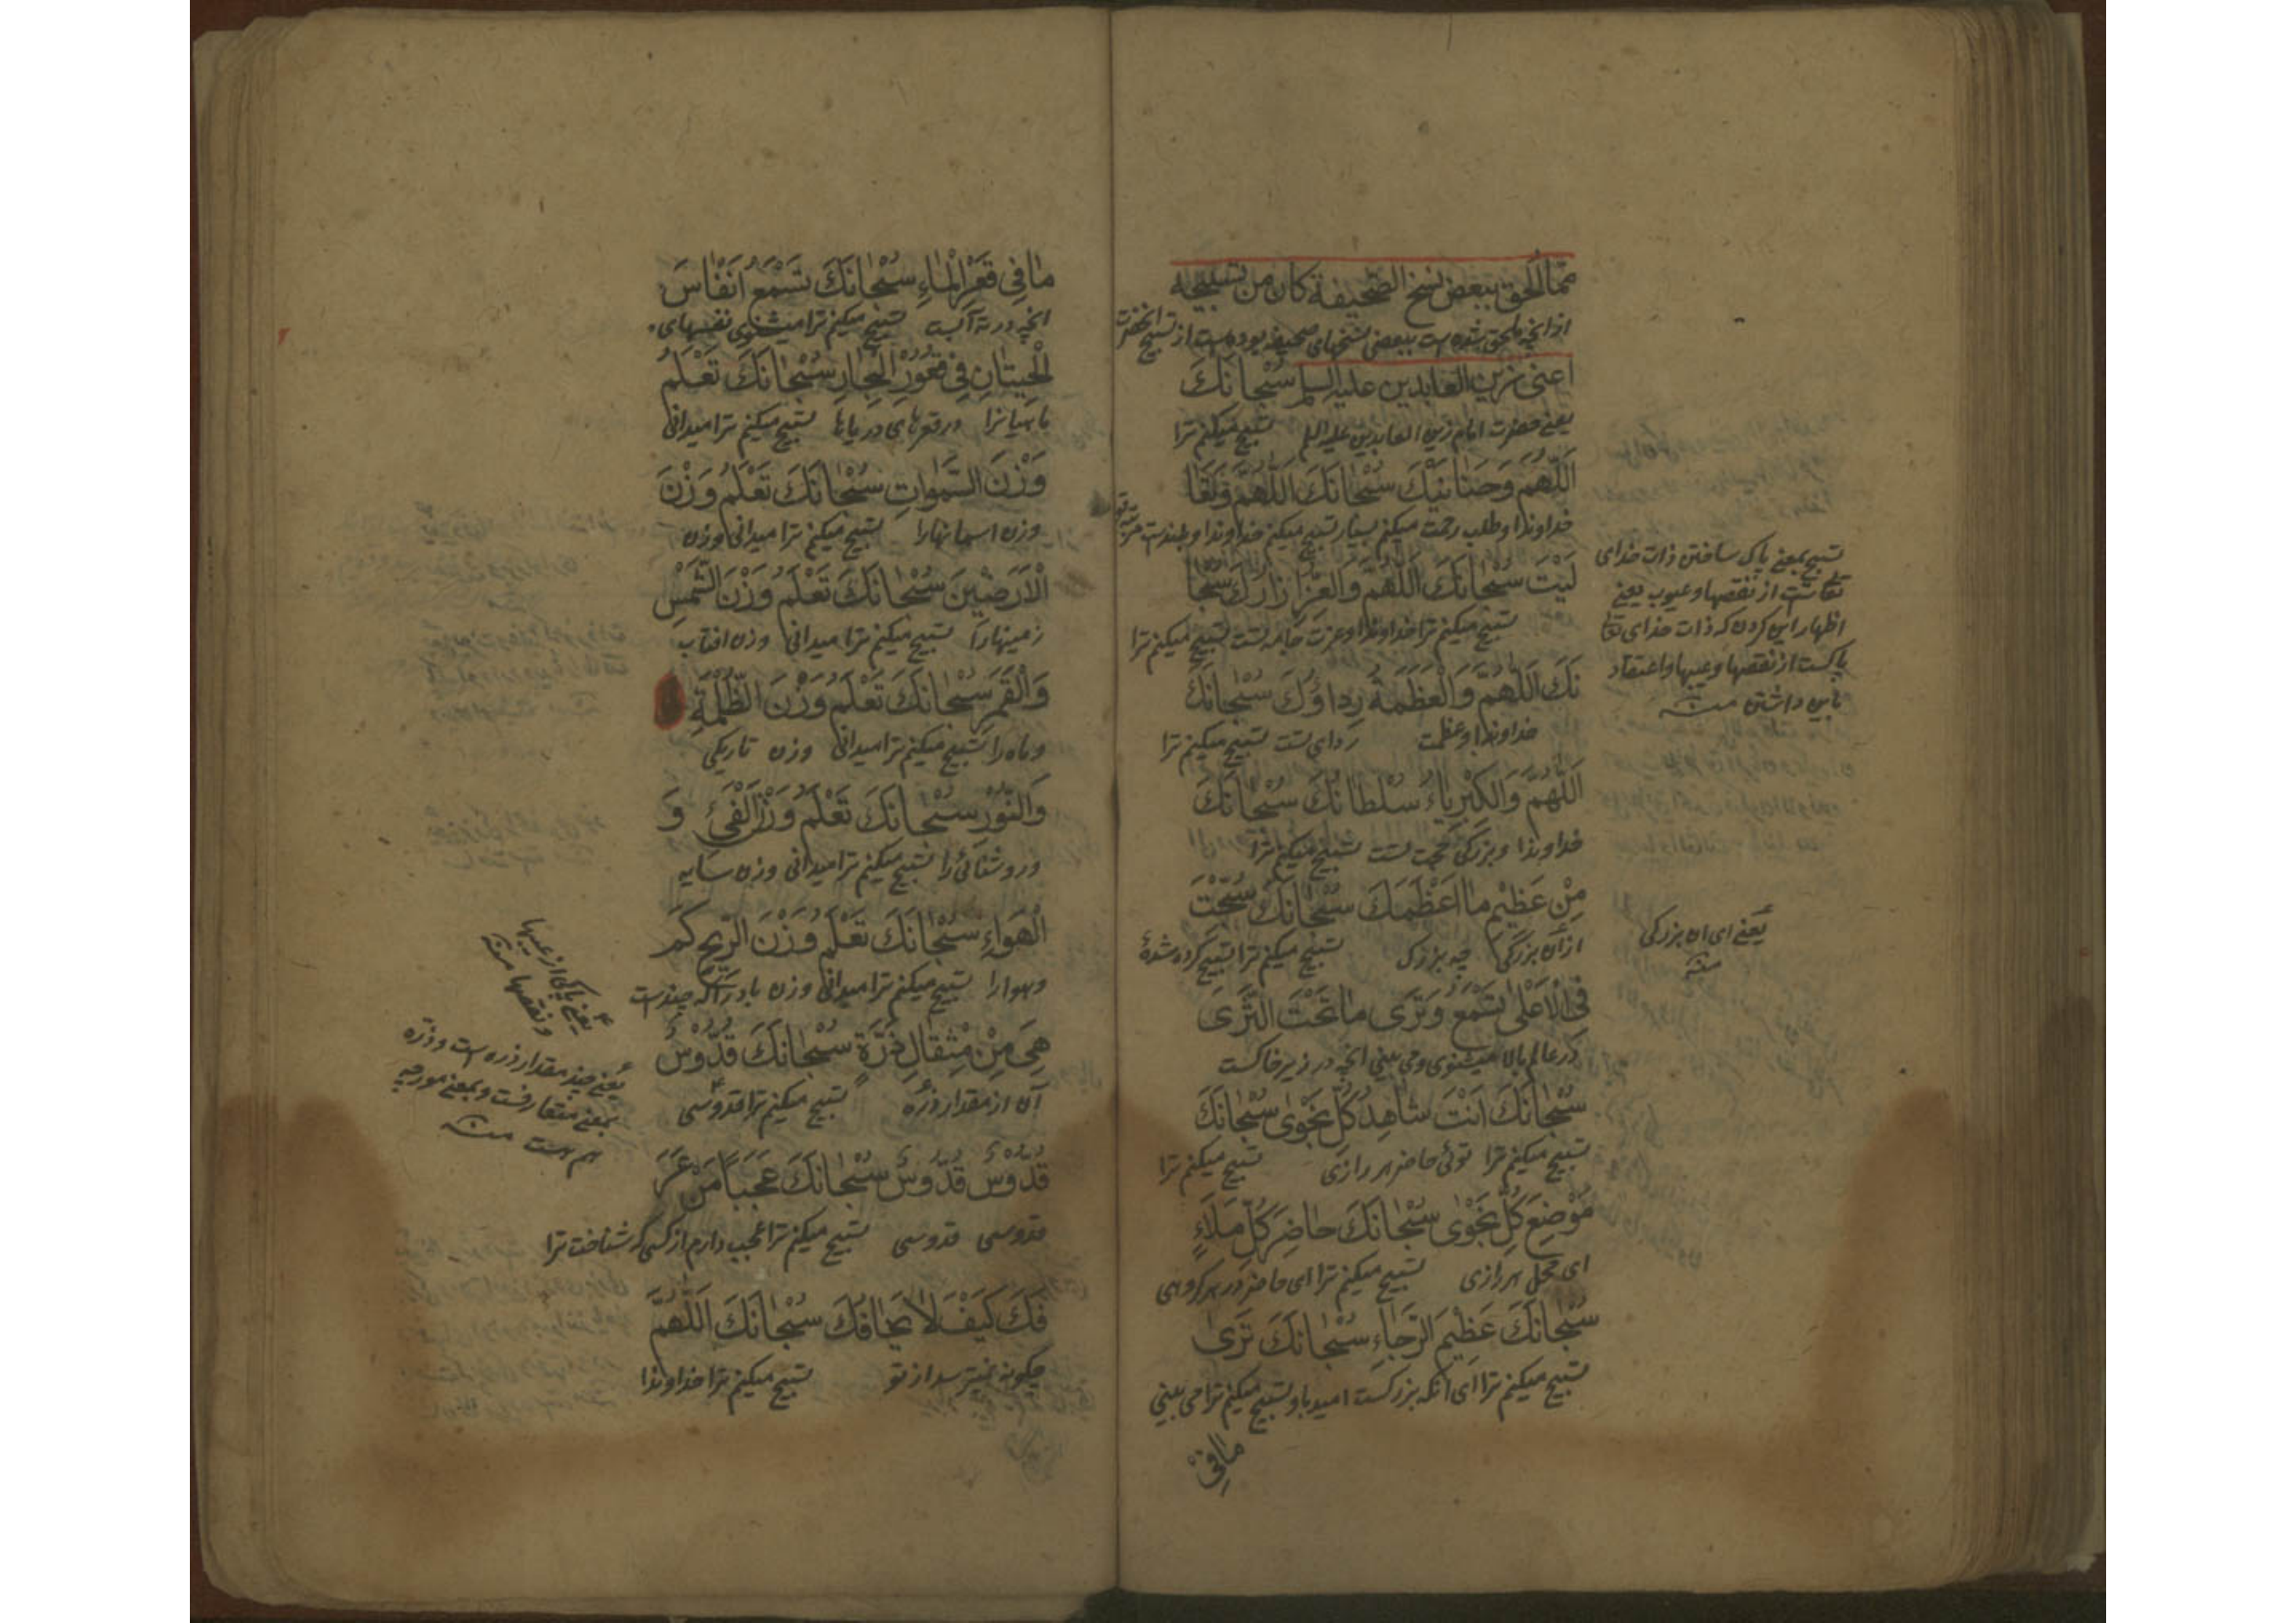 مِمَّا أُلْحِقَ بِبَعْضِ نُسَخِ الصَّحِيفَةِ كَانَ مِنْ تَسْبِيحِهِ
از انچه ملحق شده است ببعضی نسخهای صحیفه بوده است از تسبیح انحضرت
اَعْنِى زَيْنَ الْعَابِدِينَ عَلَيْهِ السَّلم سُبْحَانَكَ
یعنی حضرت امام زین العابدین علیه السلم تسبیح میکنم ترا
اَللّٰهُمَّ وَحَنَانَيْكَ سُبْحَانَكَ اَللّٰهُمَّ وَتَعَا
خداوندا و طلب رحمت میکنم بسیار تسبیح میکنم خداوندا و بلندست مرتبه تو
لَيْتَ سُبْحَانَكَ اَللّٰهُمَّ وَالْعِزُّ اِزَارُكَ سُبْحَا
تسبیح میکنم ترا خداوندا و عزت جامه تست تسبیح میکنم ترا
نَكَ اَللّٰهُمَّ وَالْعَظَمَةُ رِدَاؤُكَ سُبْحَانَكَ
خداوندا و عظمت ردای تست تسبیح میکنم ترا
اَللّٰهُمَّ وَالْكِبْرِيَاءُ سُلْطَانُكَ سُبْحَانَكَ
خداوندا و بزرگی حجت تست تسبیح میکنم ترا
مِنْ عَظِيمٍ مَا اَعْظَمَكَ سُبْحَانَكَ سُبِّحْتَ
از آن بزرگی چه بزرک تسبیح میکنم ترا تسبیح کرده شدهٔ
فِى الْاَعْلٰى تَسْمَعُ وَتَرٰى مَا تَحْتَ الثَّرٰى
در عالم بالا میشنوی و می بینی انچه در زیر خاکست
سُبْحَانَكَ اَنْتَ شَاهِدُ كُلِّ نَجْوٰى سُبْحَانَكَ
تسبیح میکنم ترا توئی حاضر هر رازی تسبیح میکنم ترا
مَوْضِعَ كُلِّ نَجْوٰى سُبْحَانَكَ حَاضِرَ كُلِّ مَلَاءٍ
ای محل هر رازی تسبیح میکنم ترا ای حاضر در هر گروهی
سُبْحَانَكَ عَظِيمَ الرَّجَاءِ سُبْحَانَكَ تَرٰى
تسبیح میکنم ترا ای آنکه بزرکست امید باو تسبیح میکنم ترا می بینی
مَا فِى
تسبیح بمعنی پاک ساختن ذات خدای
تعالیست از نقصها و عیوب یعنی
اظهار این کردن که ذات خدای تعا
پاکست از نقصها و عیبها و اعتقاد
باین داشتن منه
یعنی ای ان بزرکی
منه
مَا فِى قَعْرِ الْمَاءِ سُبْحَانَكَ تَسْمَعُ اَنْفَاسَ
انچه در ته آبست تسبیح میکنم ترا میشنوی نفسهای
الْحِيتَانِ فِى قُعُورِ الْبِحَارِ سُبْحَانَكَ تَعْلَمُ
ماهیانرا در قعرهای دریاها تسبیح میکنم ترا میدانی
وَزْنَ السَّمٰوَاتِ سُبْحَانَكَ تَعْلَمُ وَزْنَ
وزن اسمانهارا تسبیح میکنم ترا میدانی وزن
الْاَرَضِينَ سُبْحَانَكَ تَعْلَمُ وَزْنَ الشَّمْسِ
زمینهارا تسبیح میکنم ترا میدانی وزن افتاب
وَالْقَمَرِ سُبْحَانَكَ تَعْلَمُ وَزْنَ الظُّلْمَةِ
و ماه را تسبیح میکنم ترا میدانی وزن تاریکی
وَالنُّورِ سُبْحَانَكَ تَعْلَمُ وَزْنَ الْفَىْءِ وَ
و روشنائی را تسبیح میکنم ترا میدانی وزن سایه
الْهَوَاءِ سُبْحَانَكَ تَعْلَمُ وَزْنَ الرِّيحِ كَمْ
و هوارا تسبیح میکنم ترا میدانی وزن باد را که چندست
هِىَ مِنْ مِثْقَالِ ذَرَّةٍ سُبْحَانَكَ قُدُّوسٌ
آن از مقدار ذرّه تسبیح میکنم ترا قدوسی
قُدُّوسٌ قُدُّوسٌ سُبْحَانَكَ عَجَبًا مَنْ عَرَ
قدوسی قدوسی تسبیح میکنم ترا عجب دارم از کسی که شناخت ترا
فَكَ كَيْفَ لَا يَخَافُكَ سُبْحَانَكَ اَللّٰهُمَّ
چگونه نمیترسد از تو تسبیح میکنم ترا خداوندا
یعنی پاکی از عیبها
و نقصها منه
یعنی چند مقدار ذره است و ذرّه
بمعنی و بمعنی مورچه
هم هست منه